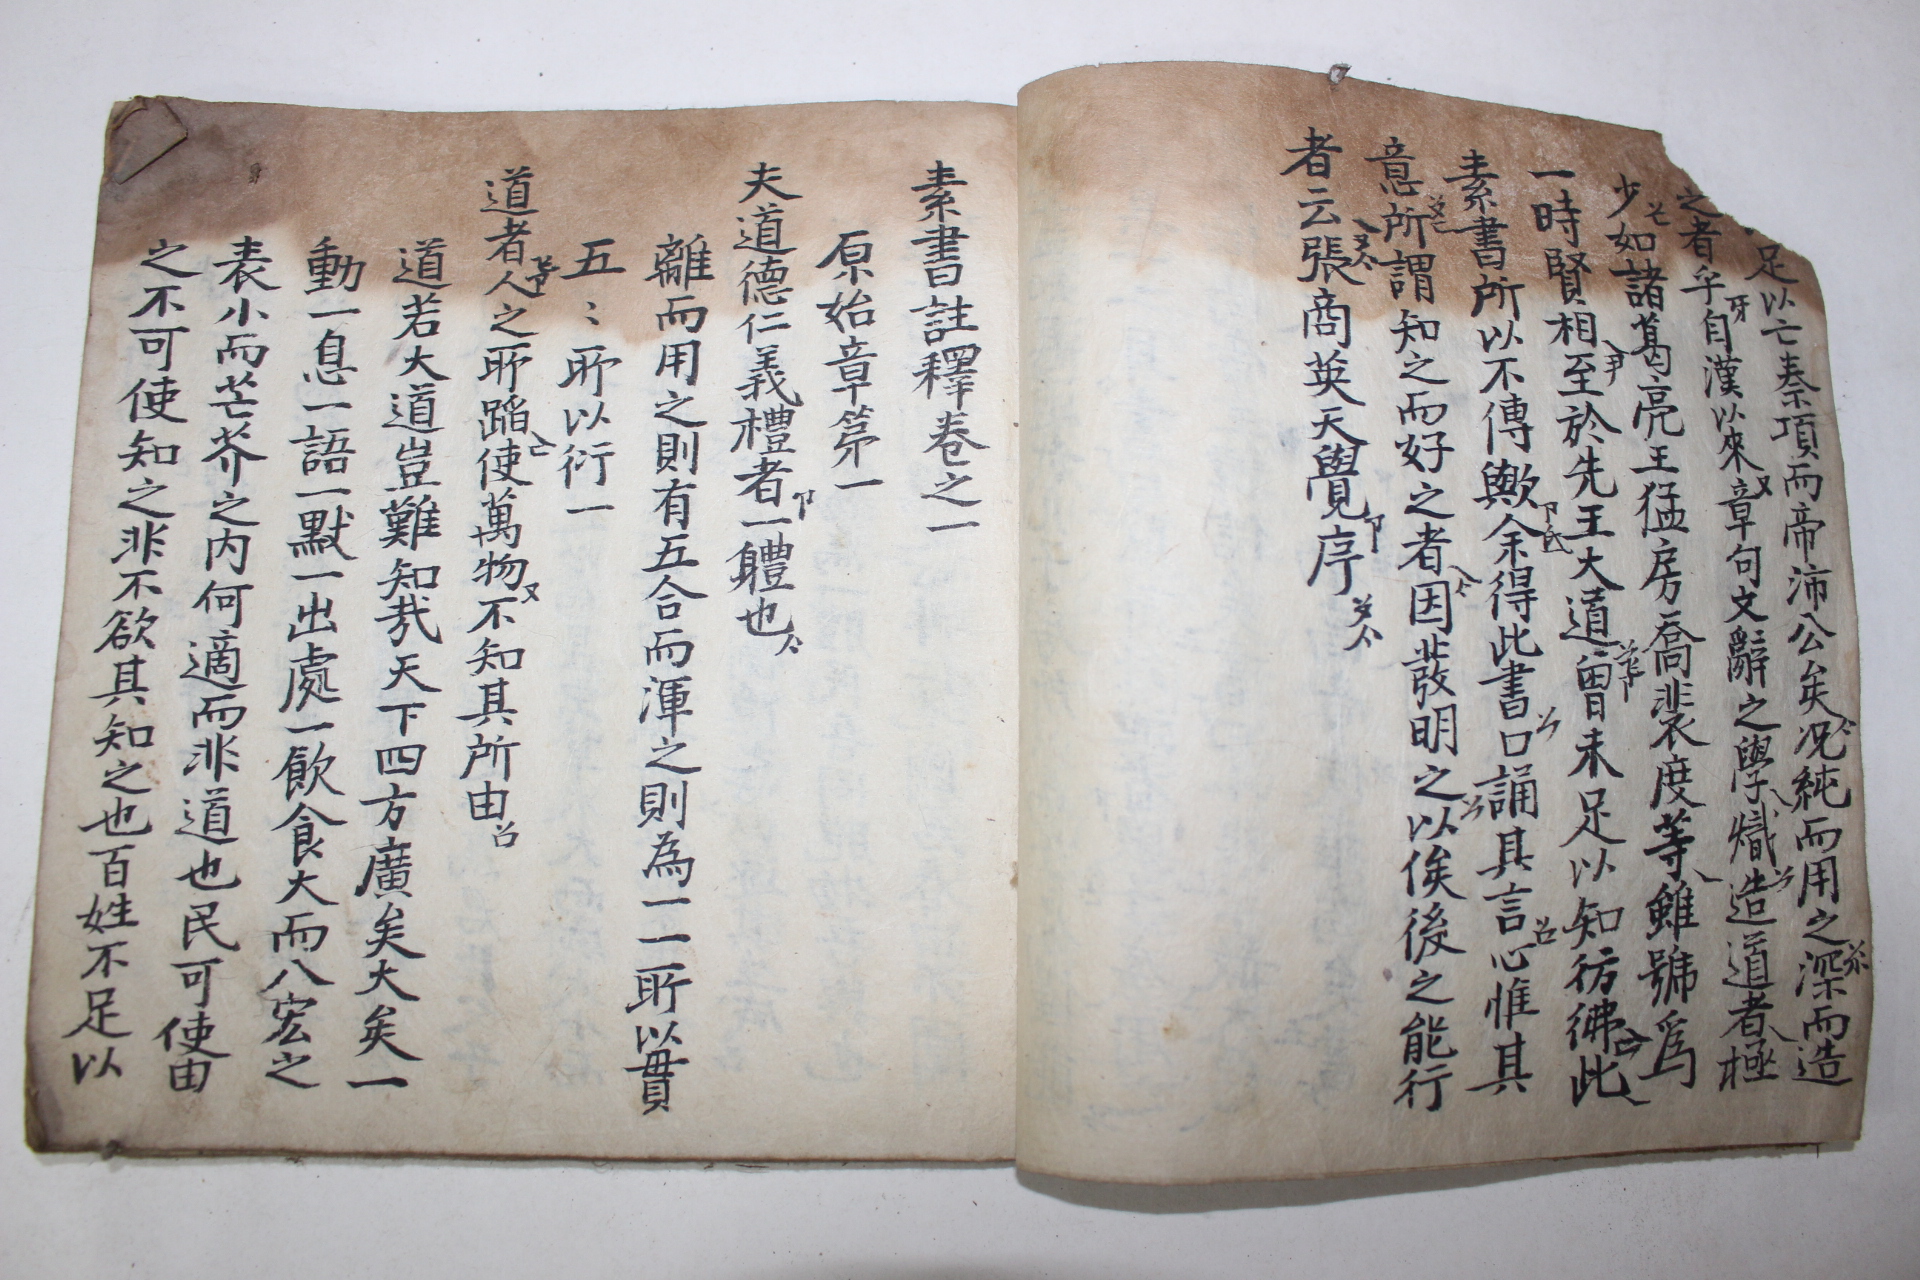 足以亡秦項而帝沛公矣况純而用之深而造
之者乎自漢以來章句文辭之學熾造道者極
少如諸葛亮王猛房喬裴度等雖號爲
一時賢相至於先王大道曾未足以知彷彿此
素書所以不傳歟余得此書口誦其言心惟其
意所謂知之而好之者因發明之以俟後之能行
者云張商英天覺序
素書註釋卷之一
原始章第一
夫道德仁義禮者一體也
離而用之則有五合而渾之則為一一所以貫
五〻所以衍一
道者人之所蹈使萬物不知其所由
道若大道豈難知㢤天下四方廣矣大矣一
動一息一語一默一出處一飲食大而八宏之
表小而芒芥之内何適而非道也民可使由
之不可使知之非不欲其知之也百姓不足以